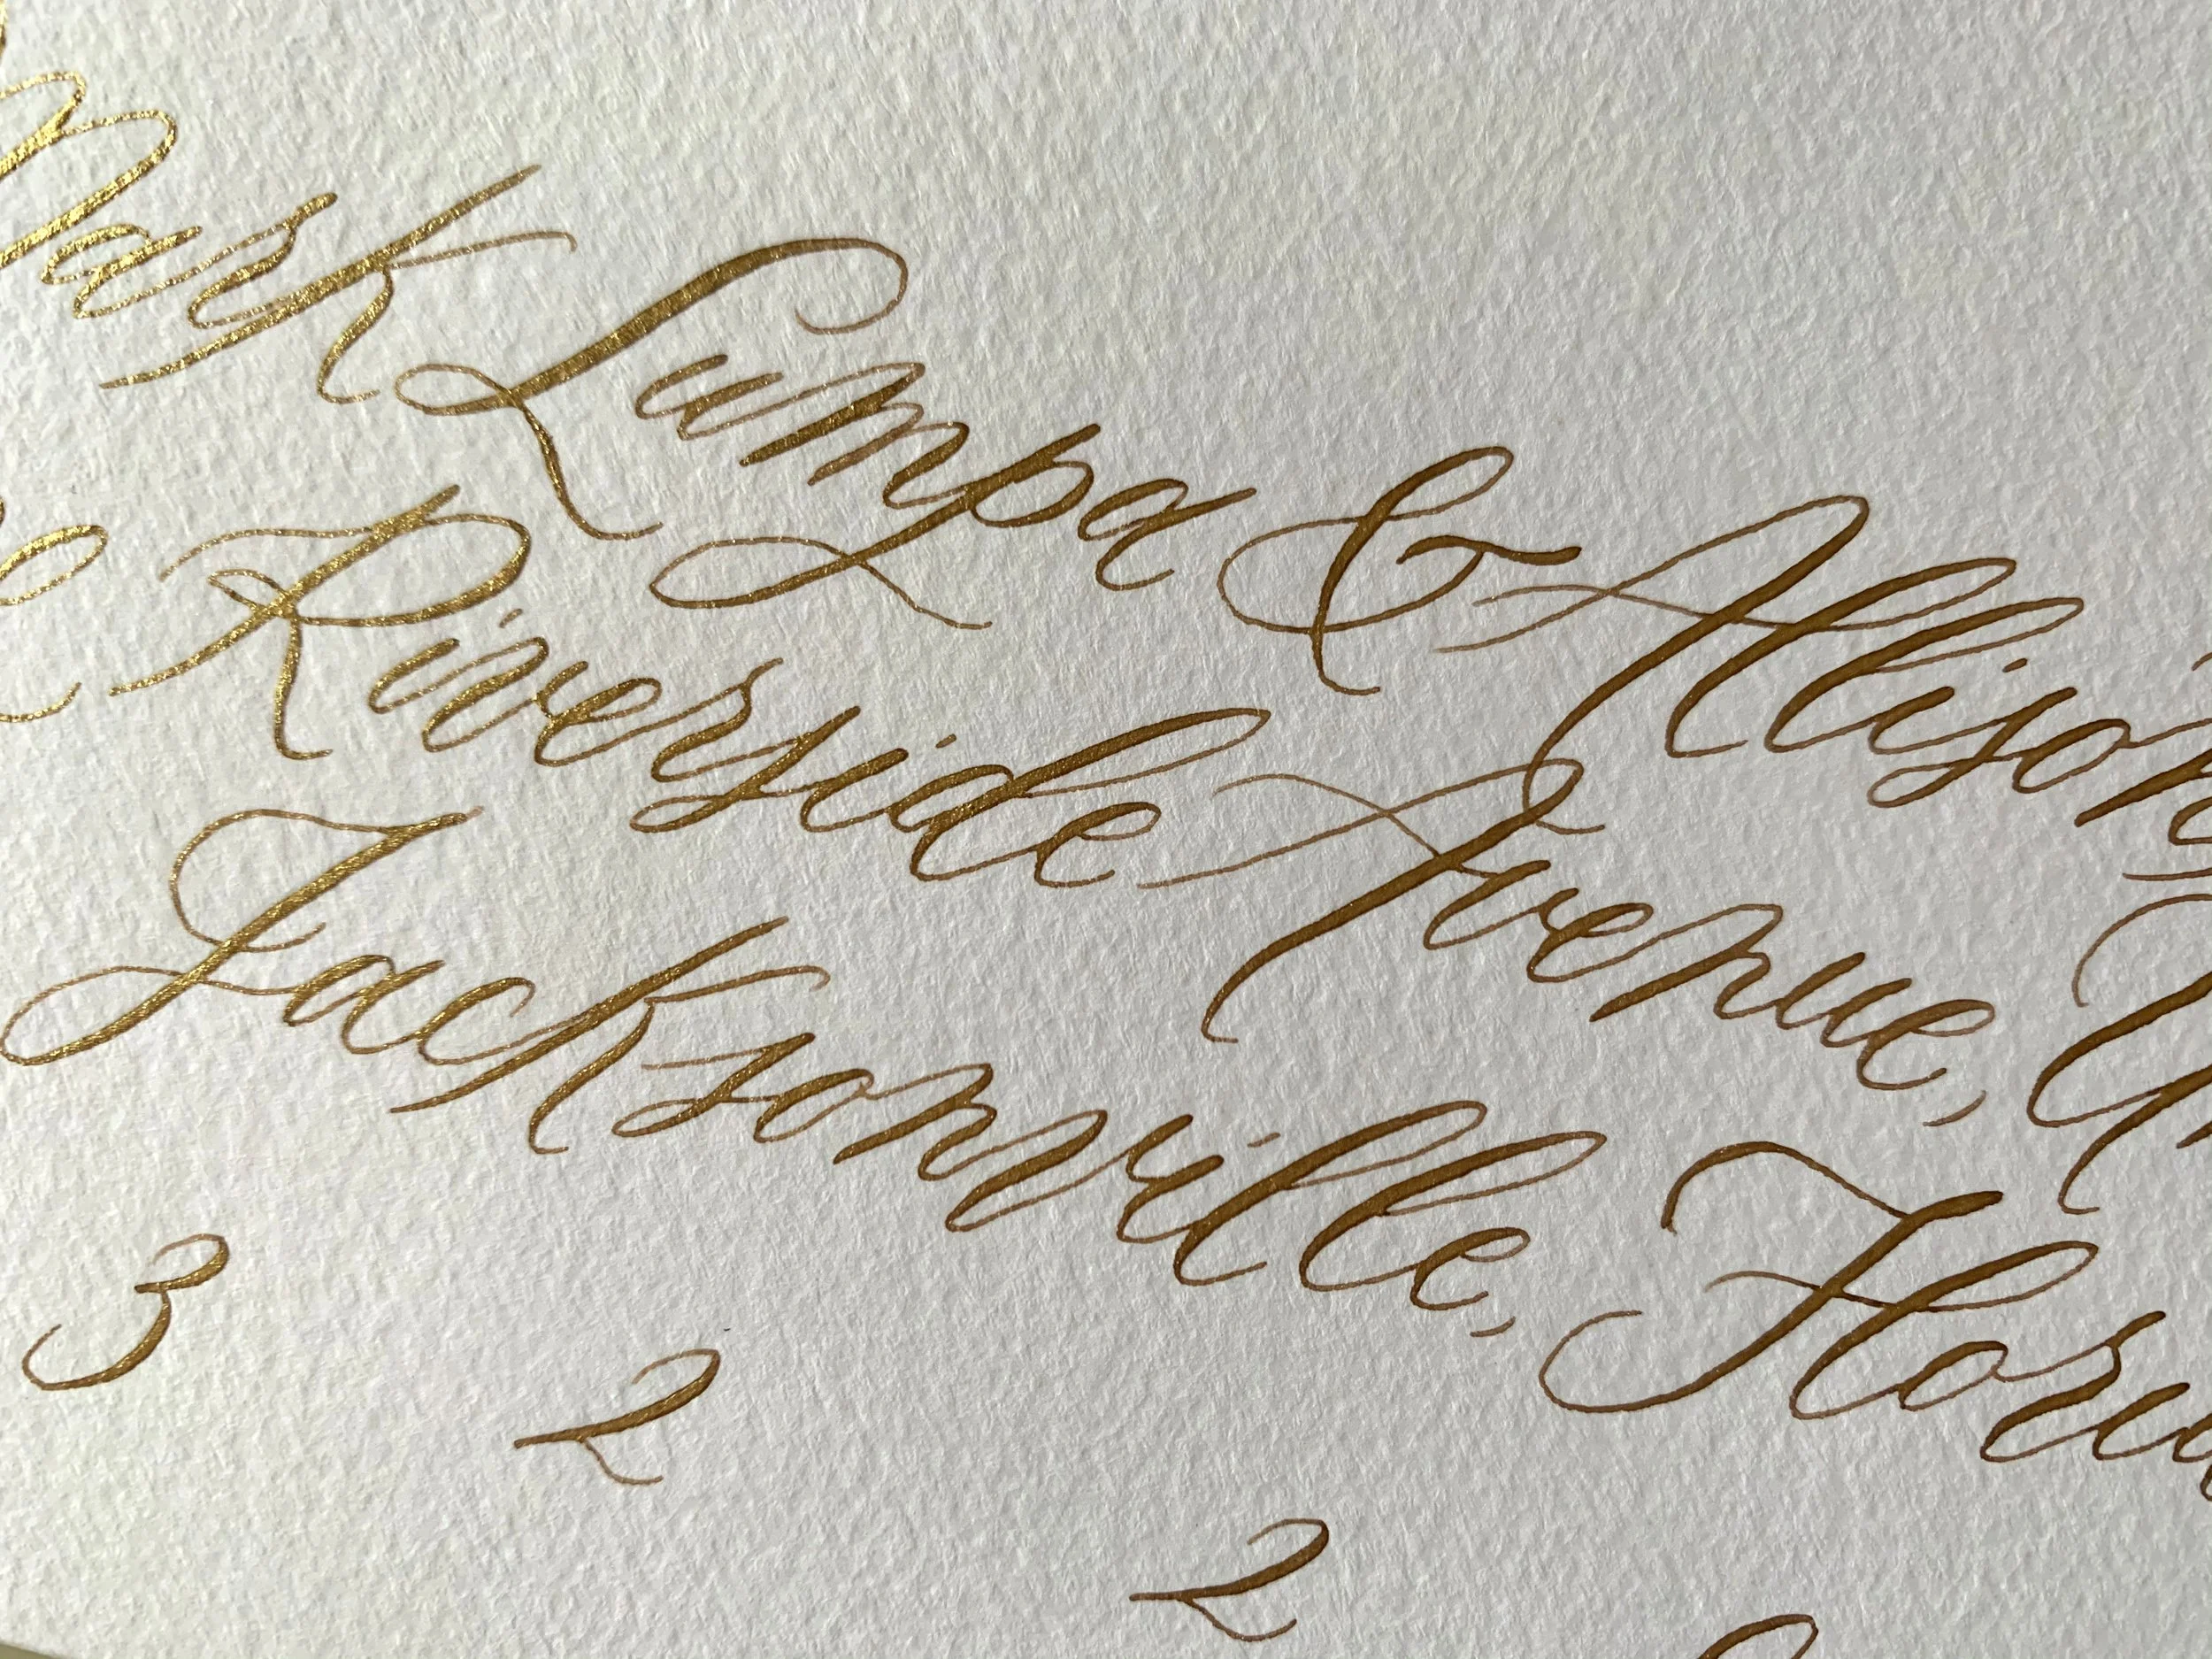 Mark Lumpa & Allison
Riverside Avenue,
Jacksonville, Florid
3 2 2